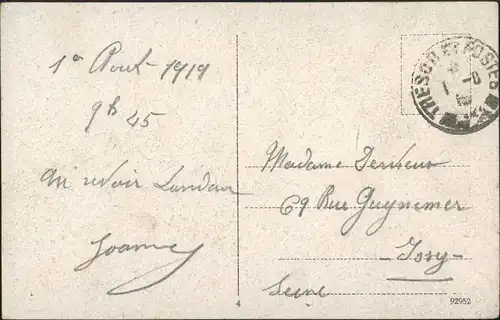 1er Aout 1919
9h 45
Au revoir Landau
Joanny
TRESOR ET POSTES
Madame
69 Rue Guynemer
Issy
Seine
4
92952